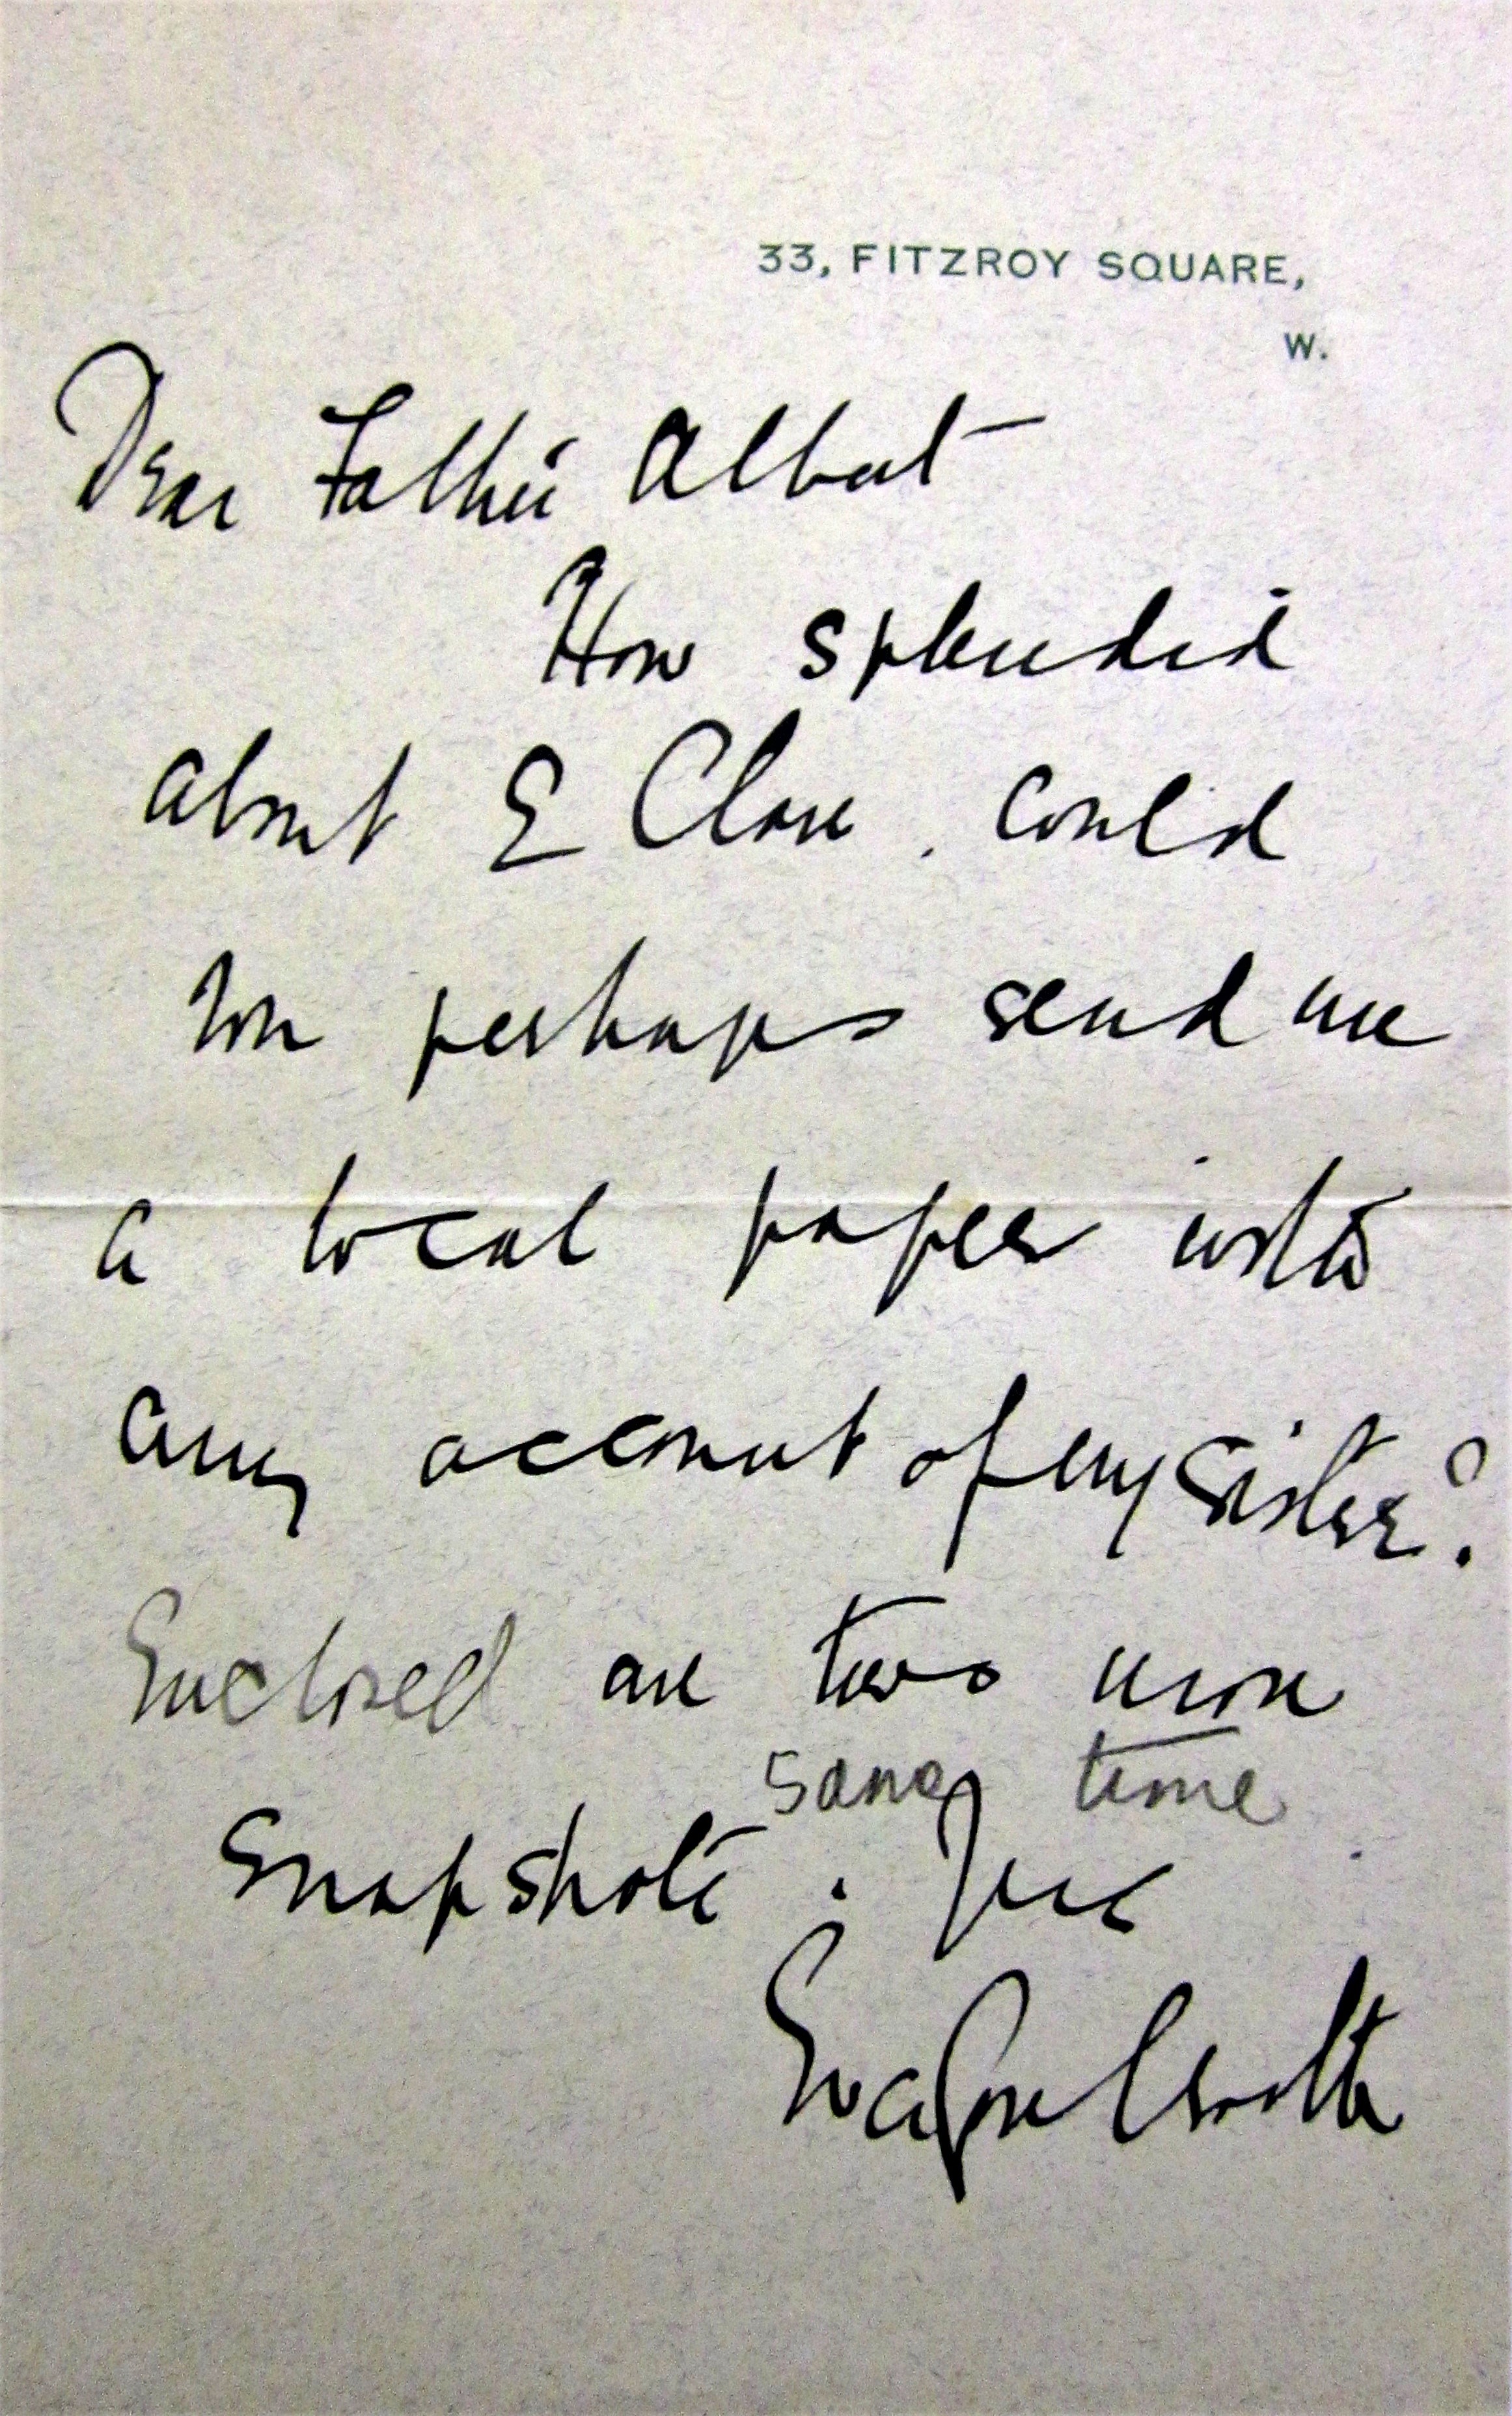 33, FITZROY SQUARE,
W.
Dear Father Albert
How splendid
about E Clare. Could
you perhaps send me
a local paper with
any account of my sister?
Enclosed are two more
same time
snapshots. Yrs
Eva Gore Booth